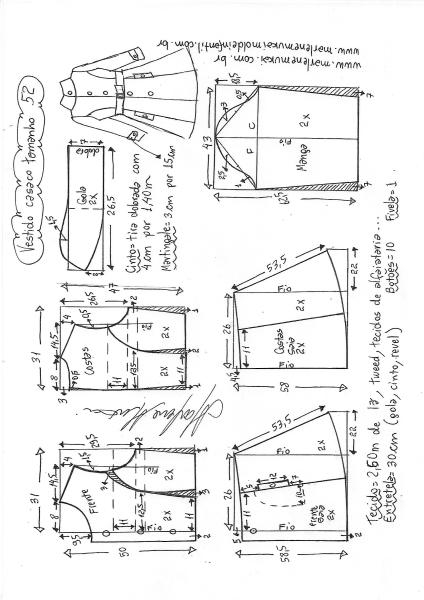 Vestido casaco tamanho 52
www.marlenemukai.com.br
www.marlenemukaimoldeinfantil.com.br
7
dobra
Gola
2x
26,5
Cinto=tira dobrada com
4 cm por 1,40m
Martingale=3 cm por 15 cm
18,5
43
F
C
Fio
Manga
2x
7
7
47
26,5
31
Costas
2x
2x
11
11
Fio
53,5
26
Costas
Saia
2x
2x
11
22
58
4,5
29,5
31
14,5
Frente
2x
2x
11
11
Fio
Fio
50
9,5
53,5
26
Fio
Fio
2x
Frente
Saia
2x
12
11
22
58,5
5
2
Tecido= 2,60m de lã, tweed, tecidos de alfaiataria...
Entretela= 30 cm (gola, cinto, revel)
Botões=10
Fivela=1